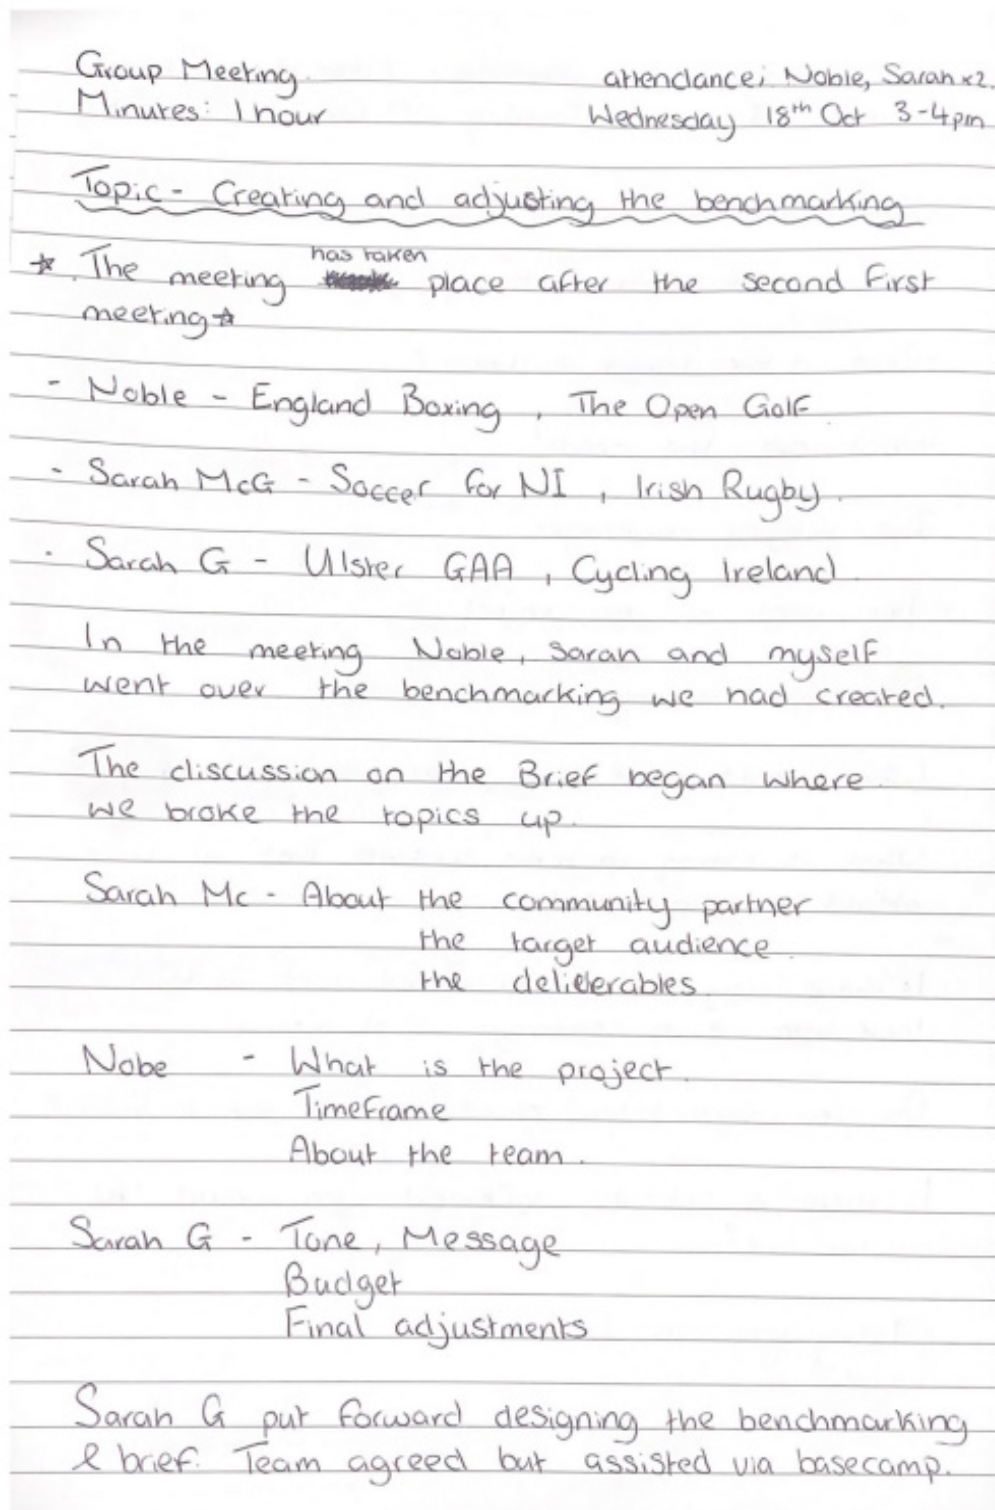 Group Meeting. attendance: Noble, Sarah x2.
Minutes: 1 hour Wednesday 18th Oct 3-4pm
Topic - Creating and adjusting the benchmarking
☆ The meeting has taken place after the second first
meeting ☆
- Noble - England Boxing, The Open Golf.
- Sarah McG - Soccer for NI, Irish Rugby.
- Sarah G - Ulster GAA, Cycling Ireland.
In the meeting Noble, Sarah and myself
went over the benchmarking we had created.
The discussion on the Brief began where
we broke the topics up.
Sarah Mc - About the community partner
the target audience.
the deliverables.
Nobe - What is the project.
Timeframe
About the team.
Sarah G - Tone, Message
Budget
Final adjustments
Sarah G put forward designing the benchmarking
& brief. Team agreed but assisted via basecamp.